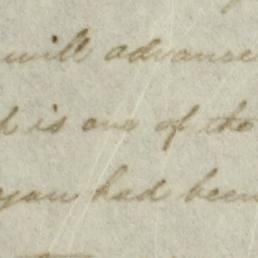 will advance
is one of the
you had been